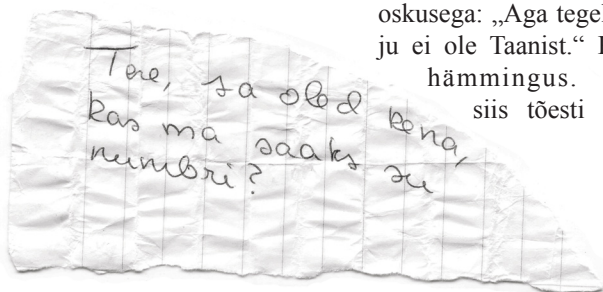 oskusega: „Aga tegel
ju ei ole Taanist.“
hämmingus.
siis tõesti
Tere, sa oled kena,
kas ma saaks su
numbri?